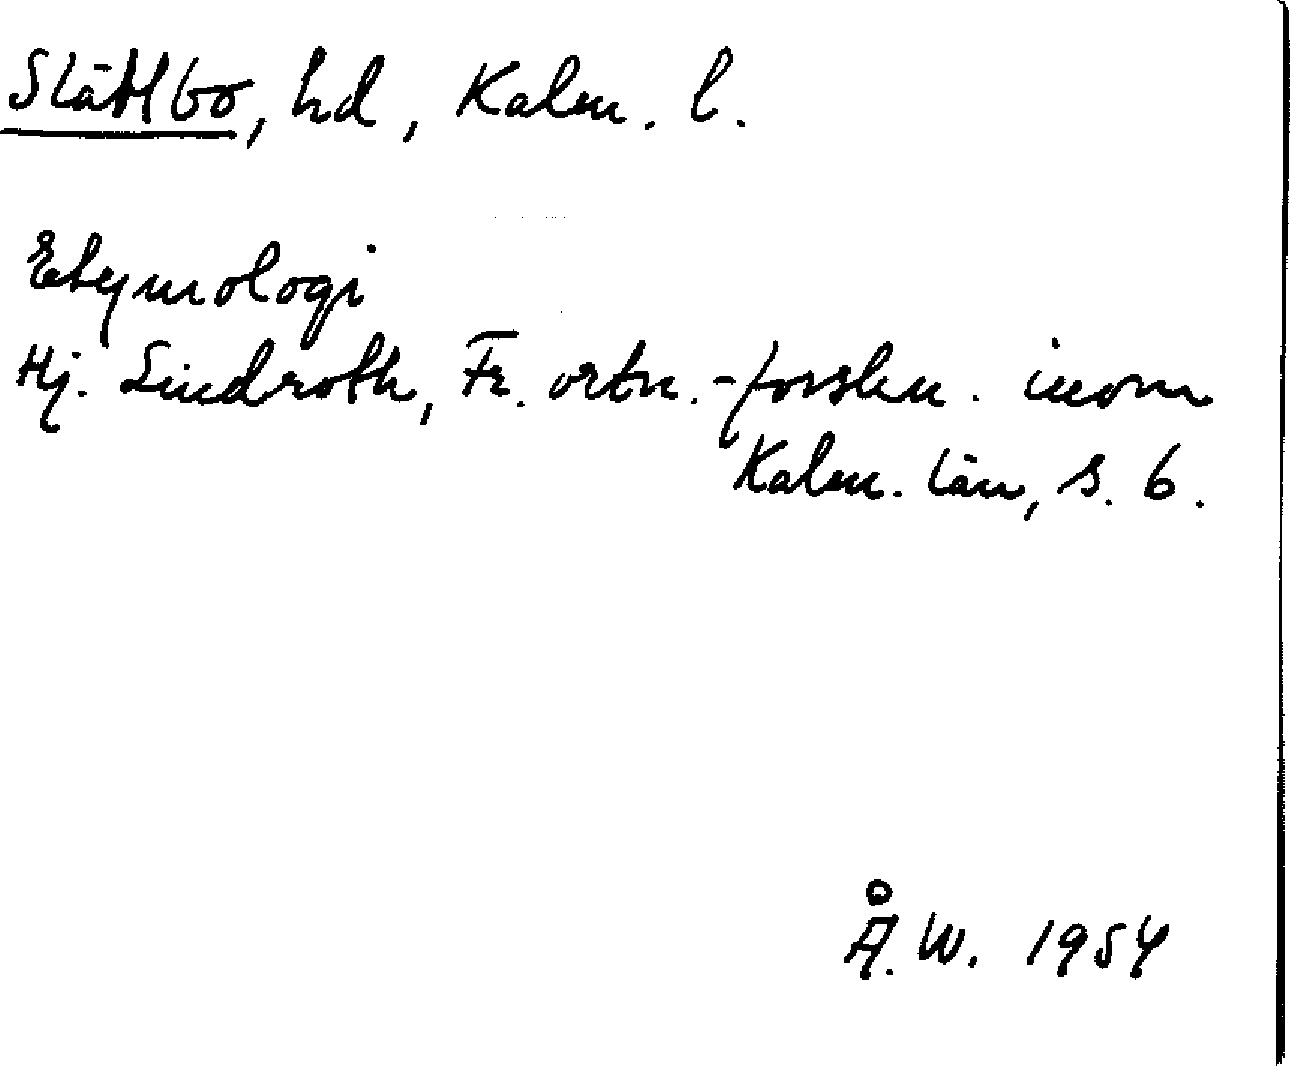 Slättbo, hd, Kalm. l.
Etymologi
Hj. Lindroth, Fr. ortn.-forskn. inom
Kalm. län, s. 6.
Å. W. 1954